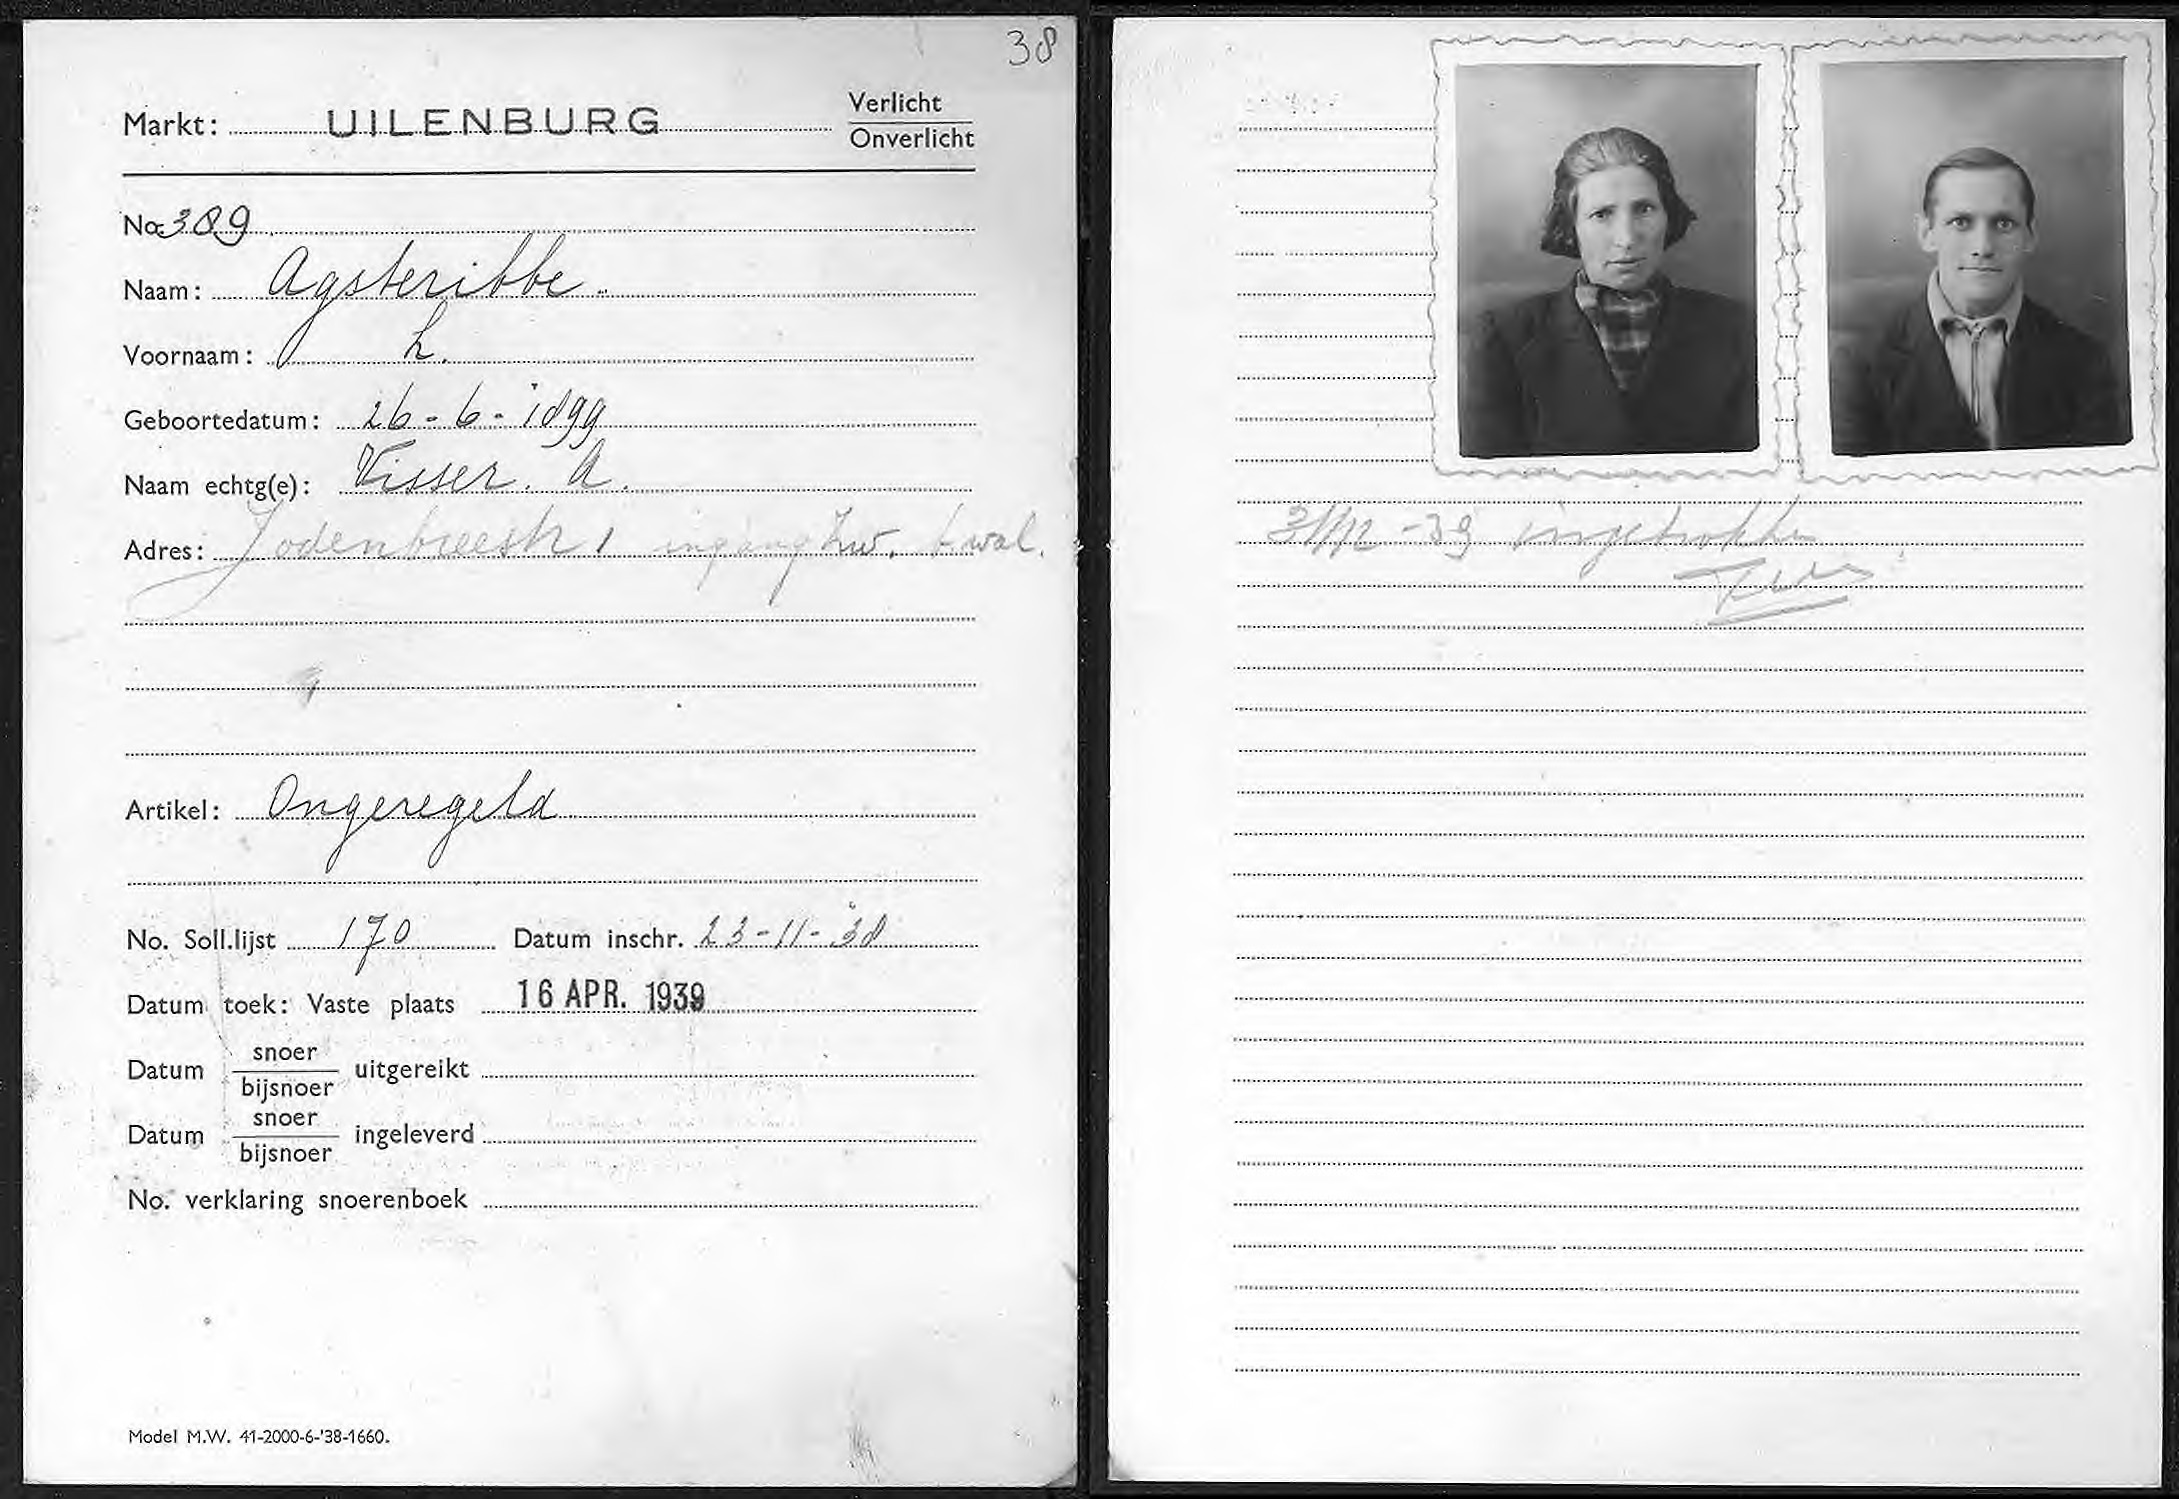 38
Markt: UILENBURG Verlicht
Onverlicht
No. 389
Naam: Agsteribbe.
Voornaam: L.
Geboortedatum: 26-6-1899
Naam echtg(e): Visser. A.
Adres: Jodenbreestr 1 ingang Zw. b. wal.
Artikel: Ongeregeld
No. Soll.lijst 170 Datum inschr. 23-11-38
Datum toek: Vaste plaats 16 APR. 1939
Datum snoer
bijsnoer uitgereikt
Datum snoer
bijsnoer ingeleverd
No. verklaring snoerenboek
Model M.W. 41-2000-6-'38-1660.
31/12-39 ingetrokken